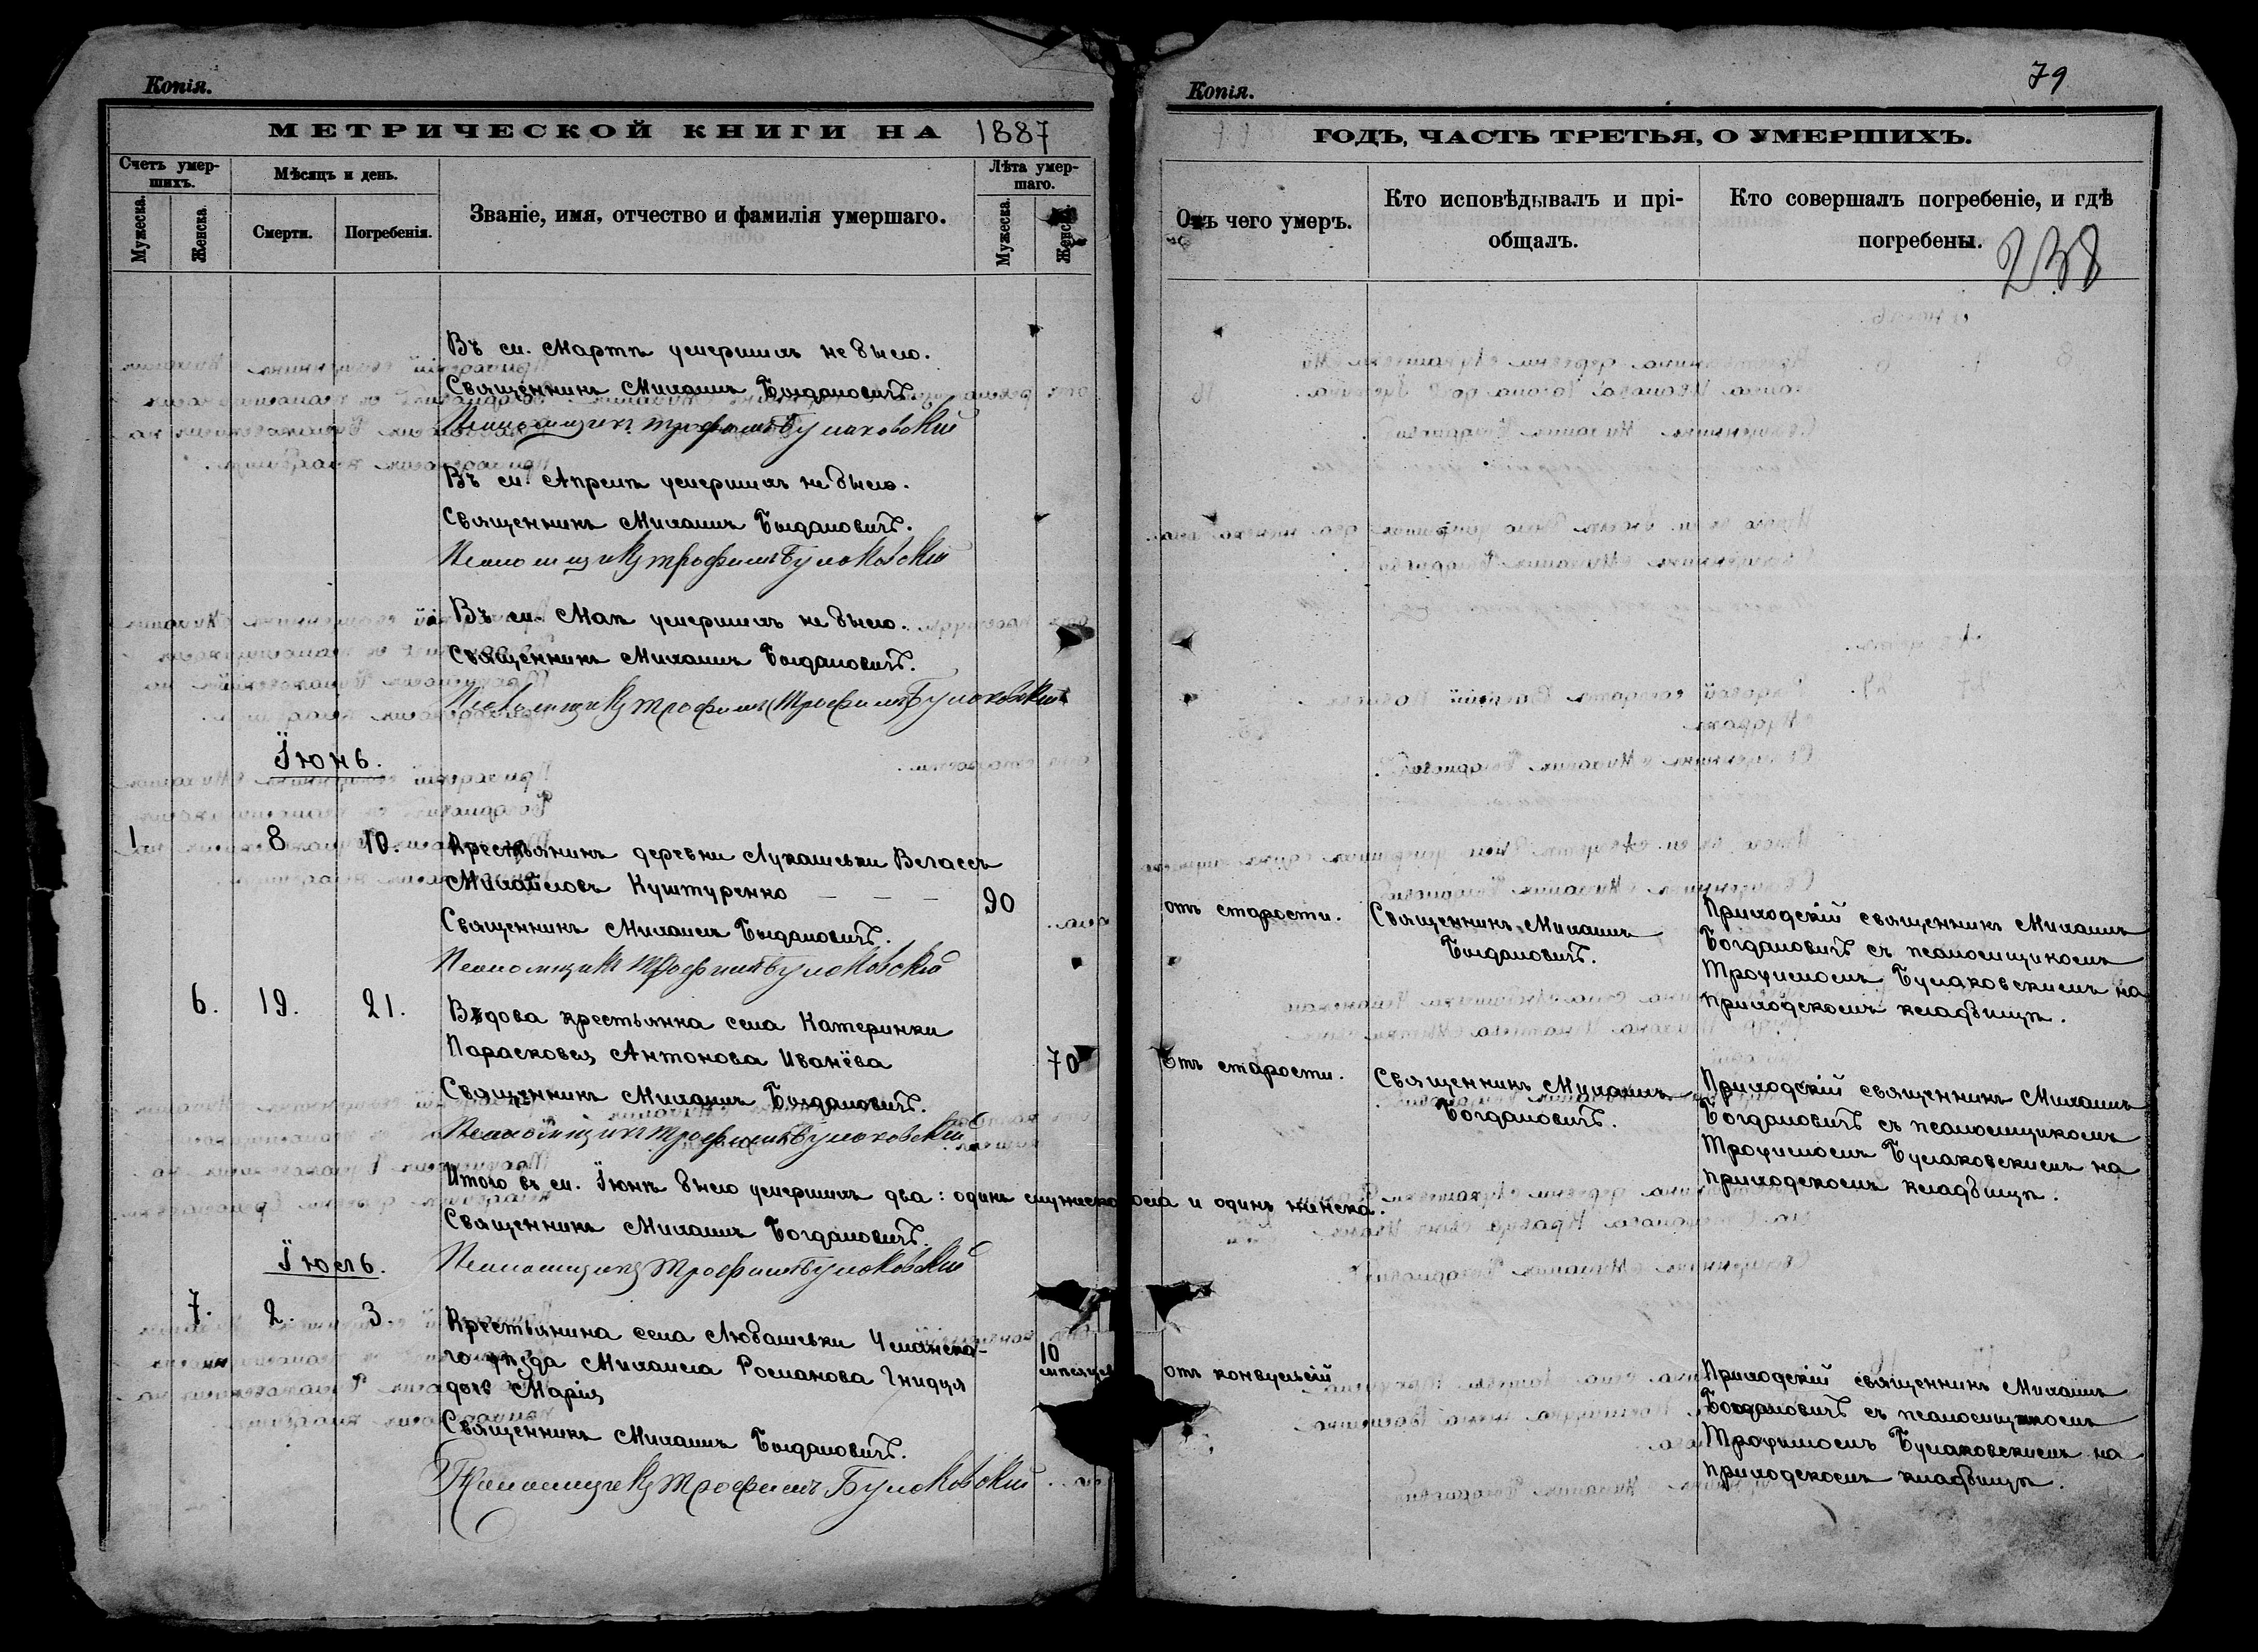 Копія.
МЕТРИЧЕСКОЙ КНИГИ НА 1887
Счетъ умер-
шихъ.
Мѣсяцъ и день.
Званіе, имя, отчество и фамилія умершаго.
Лѣта умер-
шаго.
Мужеска.
Женска.
Смерти.
Погребенія.
Мужеска.
Женска.
Въ м. Мартѣ умершихъ не было.
Священникъ Михаилъ Богдановичъ.
Псаломщикъ Трофимъ Бумаковскій
Въ м. Апрелѣ умершихъ не было.
Священникъ Михаилъ Богдановичъ.
Псаломщикъ Трофимъ Бумаковскій
Въ м. Маѣ умершихъ не было.
Священникъ Михаилъ Богдановичъ.
Псаломщикъ Трофимъ Трофимъ Бумаковскій
Іюнь.
1 8 10. Крестьянинъ деревни Лукашевки
Михайловъ Куштуренко — — — 90
Священникъ Михаилъ Богдановичъ.
Псаломщикъ Трофимъ Бумаковскій
6. 19. 21. Вдова крестьянка села Катеринки
Параскова Антонова Иванёва 70
Священникъ Михаилъ Богдановичъ.
Псаломщикъ Трофимъ Бумаковскій
Итого въ м. Іюнѣ было умершихъ два: одинъ мужеска пола и одинъ женска.
Священникъ Михаилъ Богдановичъ.
Псаломщикъ Трофимъ Бумаковскій
Іюль.
7. 2. 3. Крестьянина села Любашевки
го уѣзда Михаила Романова Гнидця 10 мѣсяцев
дочь Марія
Священникъ Михаилъ Богдановичъ.
Псаломщикъ Трофимъ Бумаковскій
79
Копія.
ГОДЪ, ЧАСТЬ ТРЕТЬЯ, О УМЕРШИХЪ.
Отъ чего умеръ.
Кто исповѣдывалъ и прі-
общалъ.
Кто совершалъ погребеніе, и гдѣ
погребены.
238
отъ старости.
Священникъ Михаилъ
Богдановичъ.
Приходскій священникъ Михаилъ
Богдановичъ съ псаломщикомъ
Трофимомъ Бумаковскимъ на
приходскомъ кладбищѣ.
Отъ старости.
Священникъ Михаилъ
Богдановичъ.
Приходскій священникъ Михаилъ
Богдановичъ съ псаломщикомъ
Трофимомъ Бумаковскимъ на
приходскомъ кладбищѣ.
отъ конвульсій
Приходскій священникъ Михаилъ
Богдановичъ съ псаломщикомъ
Трофимомъ Бумаковскимъ на
приходскомъ кладбищѣ.